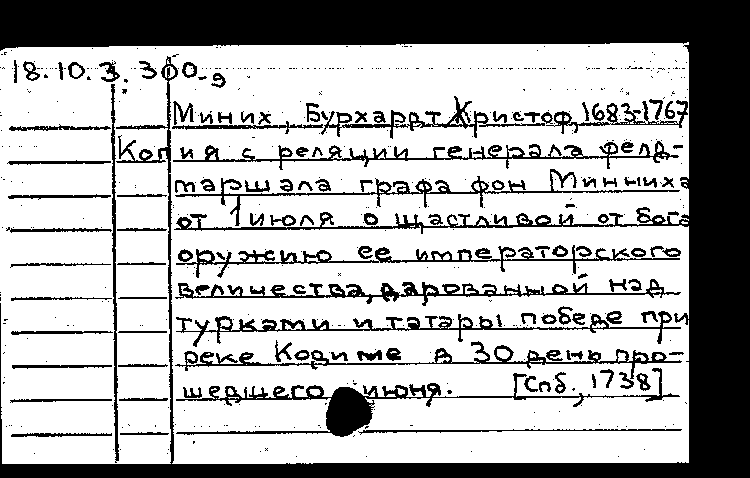 18.10.3.300-9
Миних, Бурхардт Христоф, 1683-1767
Копия с реляции генерала фелд-
маршала графа фон Минниха
от 1 июля о щастливой от бога
оружию ее императорского
величества, дарованной над
турками и татары победе при
реке Кодиме в 30 день про-
шедшего июня. [Спб., 1738]